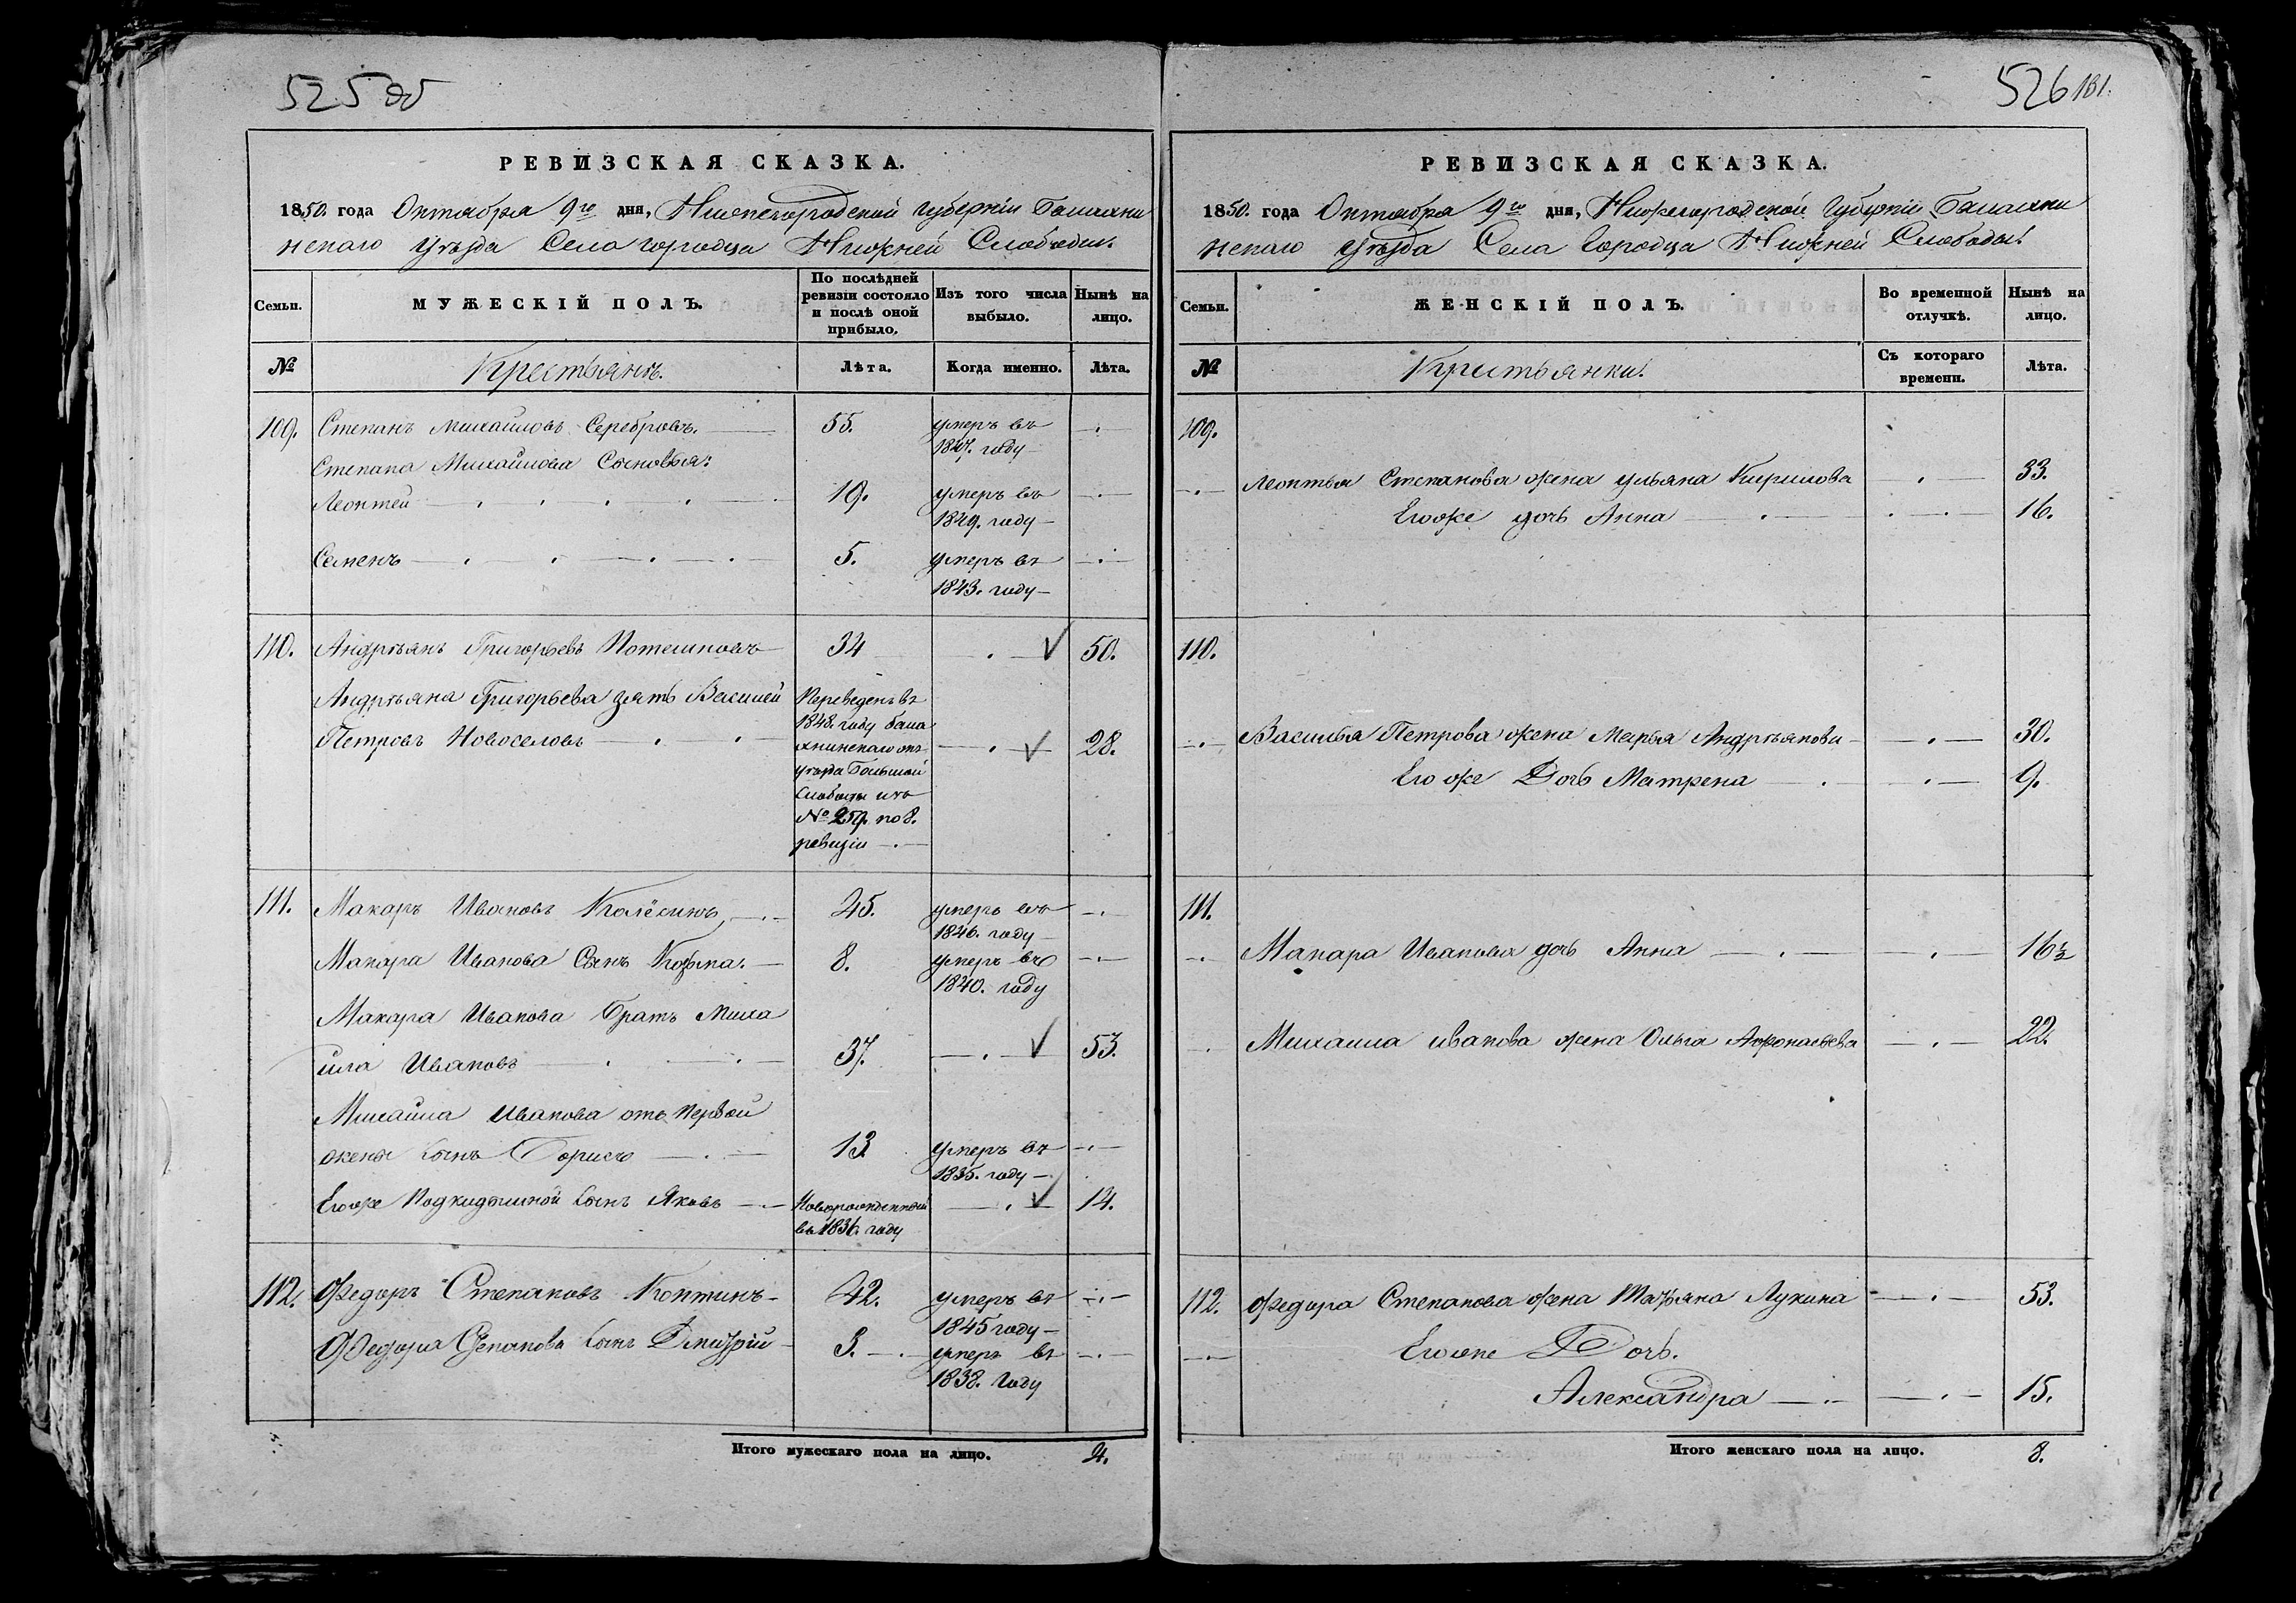 525 об
РЕВИЗСКАЯ СКАЗКА.
1850. года Октября 9го дня, Нижегородской Губернiи Балахни
нскаго Уѣзда Села Городца Нижней Слободы.
Семьи.
МУЖЕСКIЙ ПОЛЪ.
По послѣдней
ревизiи состояло
и послѣ оной
прибыло.
Изъ того числа
выбыло.
Нынѣ на
лицо.
№
Крестьянъ.
Лѣта.
Когда именно.
Лѣта.
109. Степанъ Михайловъ Серебровъ. 55. умеръ въ
1847. году
Степана Михайлова Сыновья:
Леонтей 19. умеръ въ
1849. году
Семенъ 5. умеръ въ
1843. году
110. Андрѣянъ Григорьевъ Потешновъ 34 50.
Андрѣяна Григорьева зять Василей
Петровъ Новоселовъ 28.
Переведенъ въ
1848. году Бала
хнинскаго
уѣзда Большой
Слободы изъ
№ 259. по 8.
ревизiи
111. Макаръ Ивановъ Колёсинъ 45. умеръ въ
1846. году
Макара Иванова Сынъ Козьма. 8. умеръ въ
1840. году
Макара Иванова Братъ Миха
йла Ивановъ 37. 53.
Михайла Иванова отъ первой
жены сынъ Борисъ 13 умеръ въ
1835. году
Егоже Подкидышной сынъ Яковъ Новорожденной 14.
въ 1836. году
112. Федоръ Степановъ Коптинъ 42. умеръ въ
1845 году
Федора Степанова сынъ Дмитрiй 3. умеръ въ
1838. Году
Итого мужескаго пола на лицо. 4.
526 181.
РЕВИЗСКАЯ СКАЗКА.
1850. года Октября 9го дня, Нижегородской Губернiи Балахни
нскаго Уѣзда Села Городца Нижней Слободы.
Семьи.
ЖЕНСКIЙ ПОЛЪ.
Во временной
отлучкѣ.
Нынѣ на
лицо.
№
Крестьянки.
Съ котораго
времени.
Лѣта.
109.
Леонтья Степанова жена Ульяна Кирилова 33.
Егоже дочь Анна 16.
110.
Василья Петрова жена Марья Андрѣянова 30.
Егоже Дочь Матрена 9.
111.
Макара Иванова дочь Анна 16½
Михаила Иванова жена Ольга Афонасьева 22.
112. Федора Степанова жена Татьяна Лукина 53.
Егоже Дочь.
Александра 15.
Итого женскаго пола на лицо. 8.